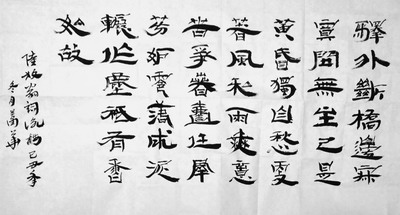 驛外斷橋邊寂
寞開無主已是
黃昏獨自愁更
著風和雨無意
苦爭春壹任羣
芳妒零落成泥
輾作塵祇有香
如故
陸放翁詞詠梅己丑年
冬月